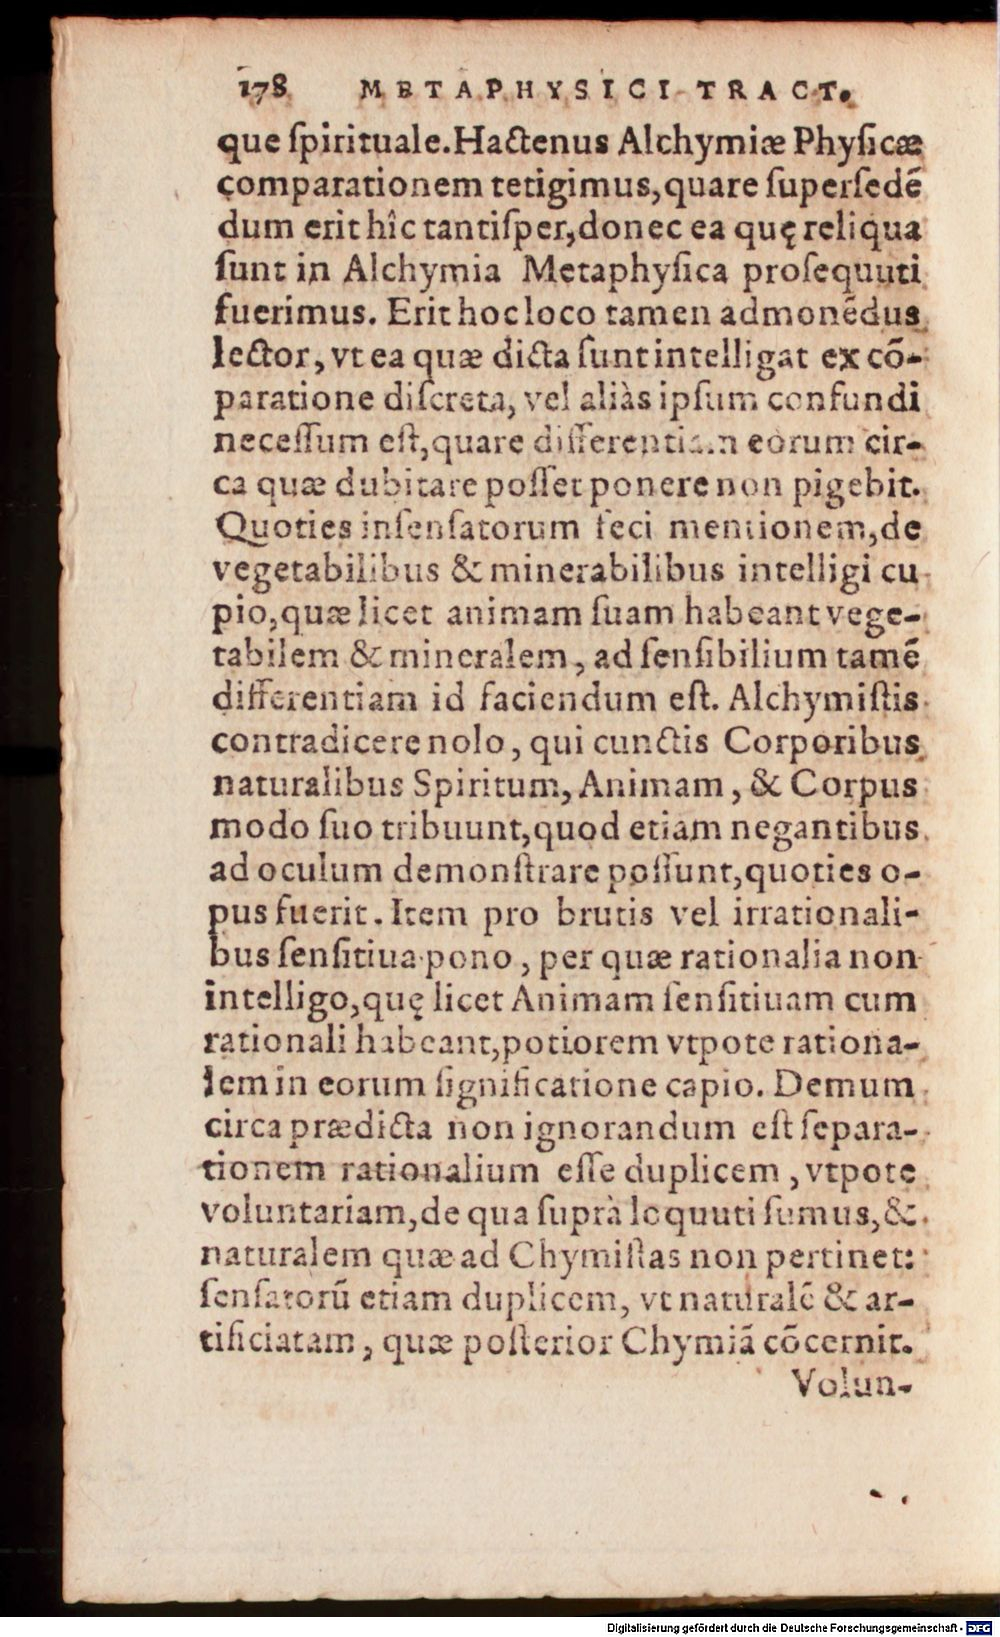 178 METAPHYSICI TRACT.
que ſpirituale. Hactenus Alchymiæ Phyſicæ
comparationem tetigimus, quare ſuperſedē
dum erit hîc tantiſper, donec ea quę reliqua
ſunt in Alchymia Metaphyſica proſequuti
fuerimus. Erit hoc loco tamen admonēdus
lector, vt ea quæ dicta ſunt intelligat ex cō-
paratione diſcreta, vel aliàs ipſum confundi
neceſſum eſt, quare differentiam eorum cir-
ca quæ dubitare poſſet ponere non pigebit.
Quoties inſenſatorum feci mentionem, de
vegetabilibus & minerabilibus intelligi cu
pio, quæ licet animam ſuam habeant vege-
tabilem & mineralem, ad ſenſibilium tamē
differentiam id faciendum eſt. Alchymiſtis
contradicere nolo, qui cunctis Corporibus
naturalibus Spiritum, Animam, & Corpus
modo ſuo tribuunt, quod etiam negantibus
ad oculum demonſtrare poſſunt, quoties o-
pus fuerit. Item pro brutis vel irrationali-
bus ſenſitiua pono, per quæ rationalia non
intelligo, quę licet Animam ſenſitiuam cum
rationali habeant, potiorem vtpote rationa-
lem in eorum ſignificatione capio. Demum
circa prædicta non ignorandum eſt ſepara-
tionem rationalium eſſe duplicem, vtpote
voluntariam, de qua ſuprà loquuti ſumus, &
naturalem quæ ad Chymiſtas non pertinet:
ſenſatorū etiam duplicem, vt naturalē & ar-
tificiatam, quæ poſterior Chymiā cōcernit.
Volun-
Digitalisierung gefördert durch die Deutsche Forschungsgemeinschaft - DFG